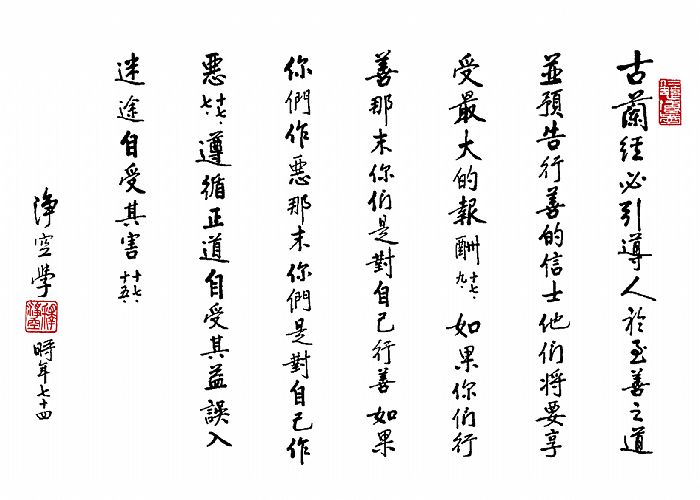 古蘭經必引導人於至善之道
並預告行善的信士他們將要享
受最大的報酬 十七、九、 如果你们行
善那末你们是對自己行善如果
你們作惡那末你們是對自己作
惡 十七、七、 遵循正道自受其益誤入
迷途自受其害 十七、十五、
淨空學
時年七十四